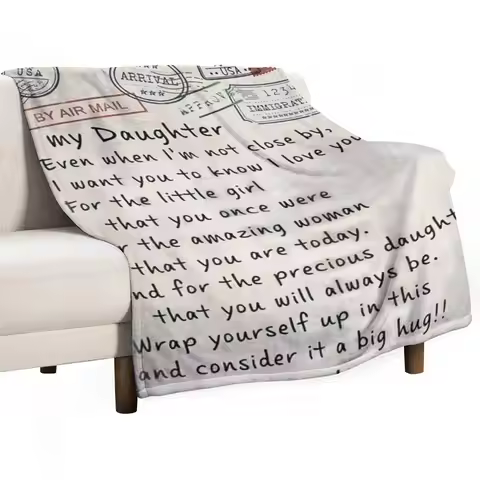 USA
ARRIVAL
USA
BY AIR MAIL
1234
IMMIGRAT
my Daughter
Even when I'm not close by,
I want you to know I love you
For the little girl
that you once were
the amazing woman
that you are today.
nd for the precious daught
that you will always be.
Wrap yourself up in this
and consider it a big hug!!